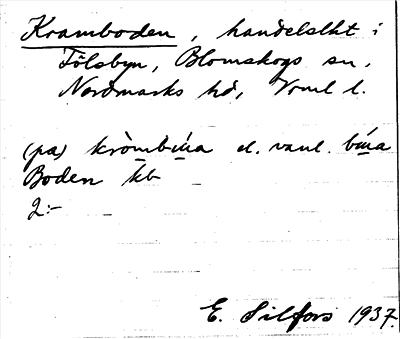 Kramboden, handelslkt i
Fölsbyn, Blomskogs sn,
Nordmarks hd, Vrml l.
(pa) kròmbúa el. vanl. búa
Boden kb
2:-
E. Silfors 1937.